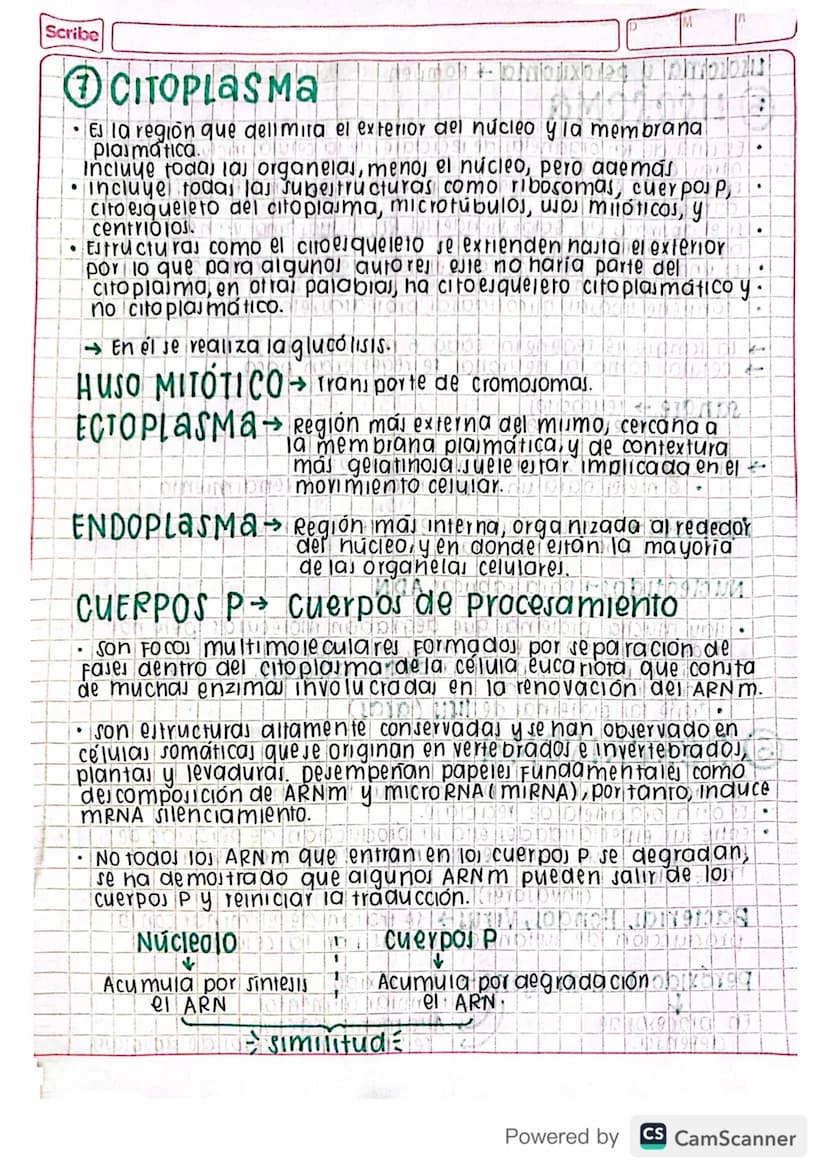 Scribe
D M A
⑦ CITOPLASMA
• Es la región que delimita el exterior del núcleo y la membrana
plasmática.
Incluye todas las organelas, menos el núcleo, pero además
• incluye todas las subestructuras como ribosomas, cuerpos P,
citoesqueleto del citoplasma, microtúbulos, usos mitóticos, y
centriolos.
• Estructuras como el citoesqueleto se extienden hasta el exterior
por lo que para algunos autores este no haría parte del
citoplasma, en otras palabras, ha citoesqueleto citoplasmático y
no citoplasmático.
→ En él se realiza la glucólisis.
HUSO MITÓTICO → Transporte de cromosomas.
ECTOPLASMA → Región más externa del mismo, cercana a
la membrana plasmática, y de contextura
más gelatinosa. suele estar implicada en el
movimiento celular.
ENDOPLASMA → Región más interna, organizada alrededor
del núcleo, y en donde están la mayoría
de las organelas celulares.
CUERPOS P → Cuerpos de Procesamiento
• son focos multimoleculares formados por separación de
fases dentro del citoplasma de la célula eucariota, que consta
de muchas enzimas involucradas en la renovación del ARNm.
• son estructuras altamente conservadas y se han observado en
células somáticas que se originan en vertebrados e invertebrados,
plantas y levaduras. Desempeñan papeles fundamentales como
descomposición de ARNm y microRNA (miRNA), por tanto, induce
mRNA silenciamiento.
• No todos los ARNm que entran en los cuerpos P se degradan,
se ha demostrado que algunos ARNm pueden salir de los
cuerpos P y reiniciar la traducción.
Núcleolo Cuerpos P
↓ ↓
Acumula por síntesis Acumula por degradación
el ARN el ARN.
similitud
Powered by CS CamScanner